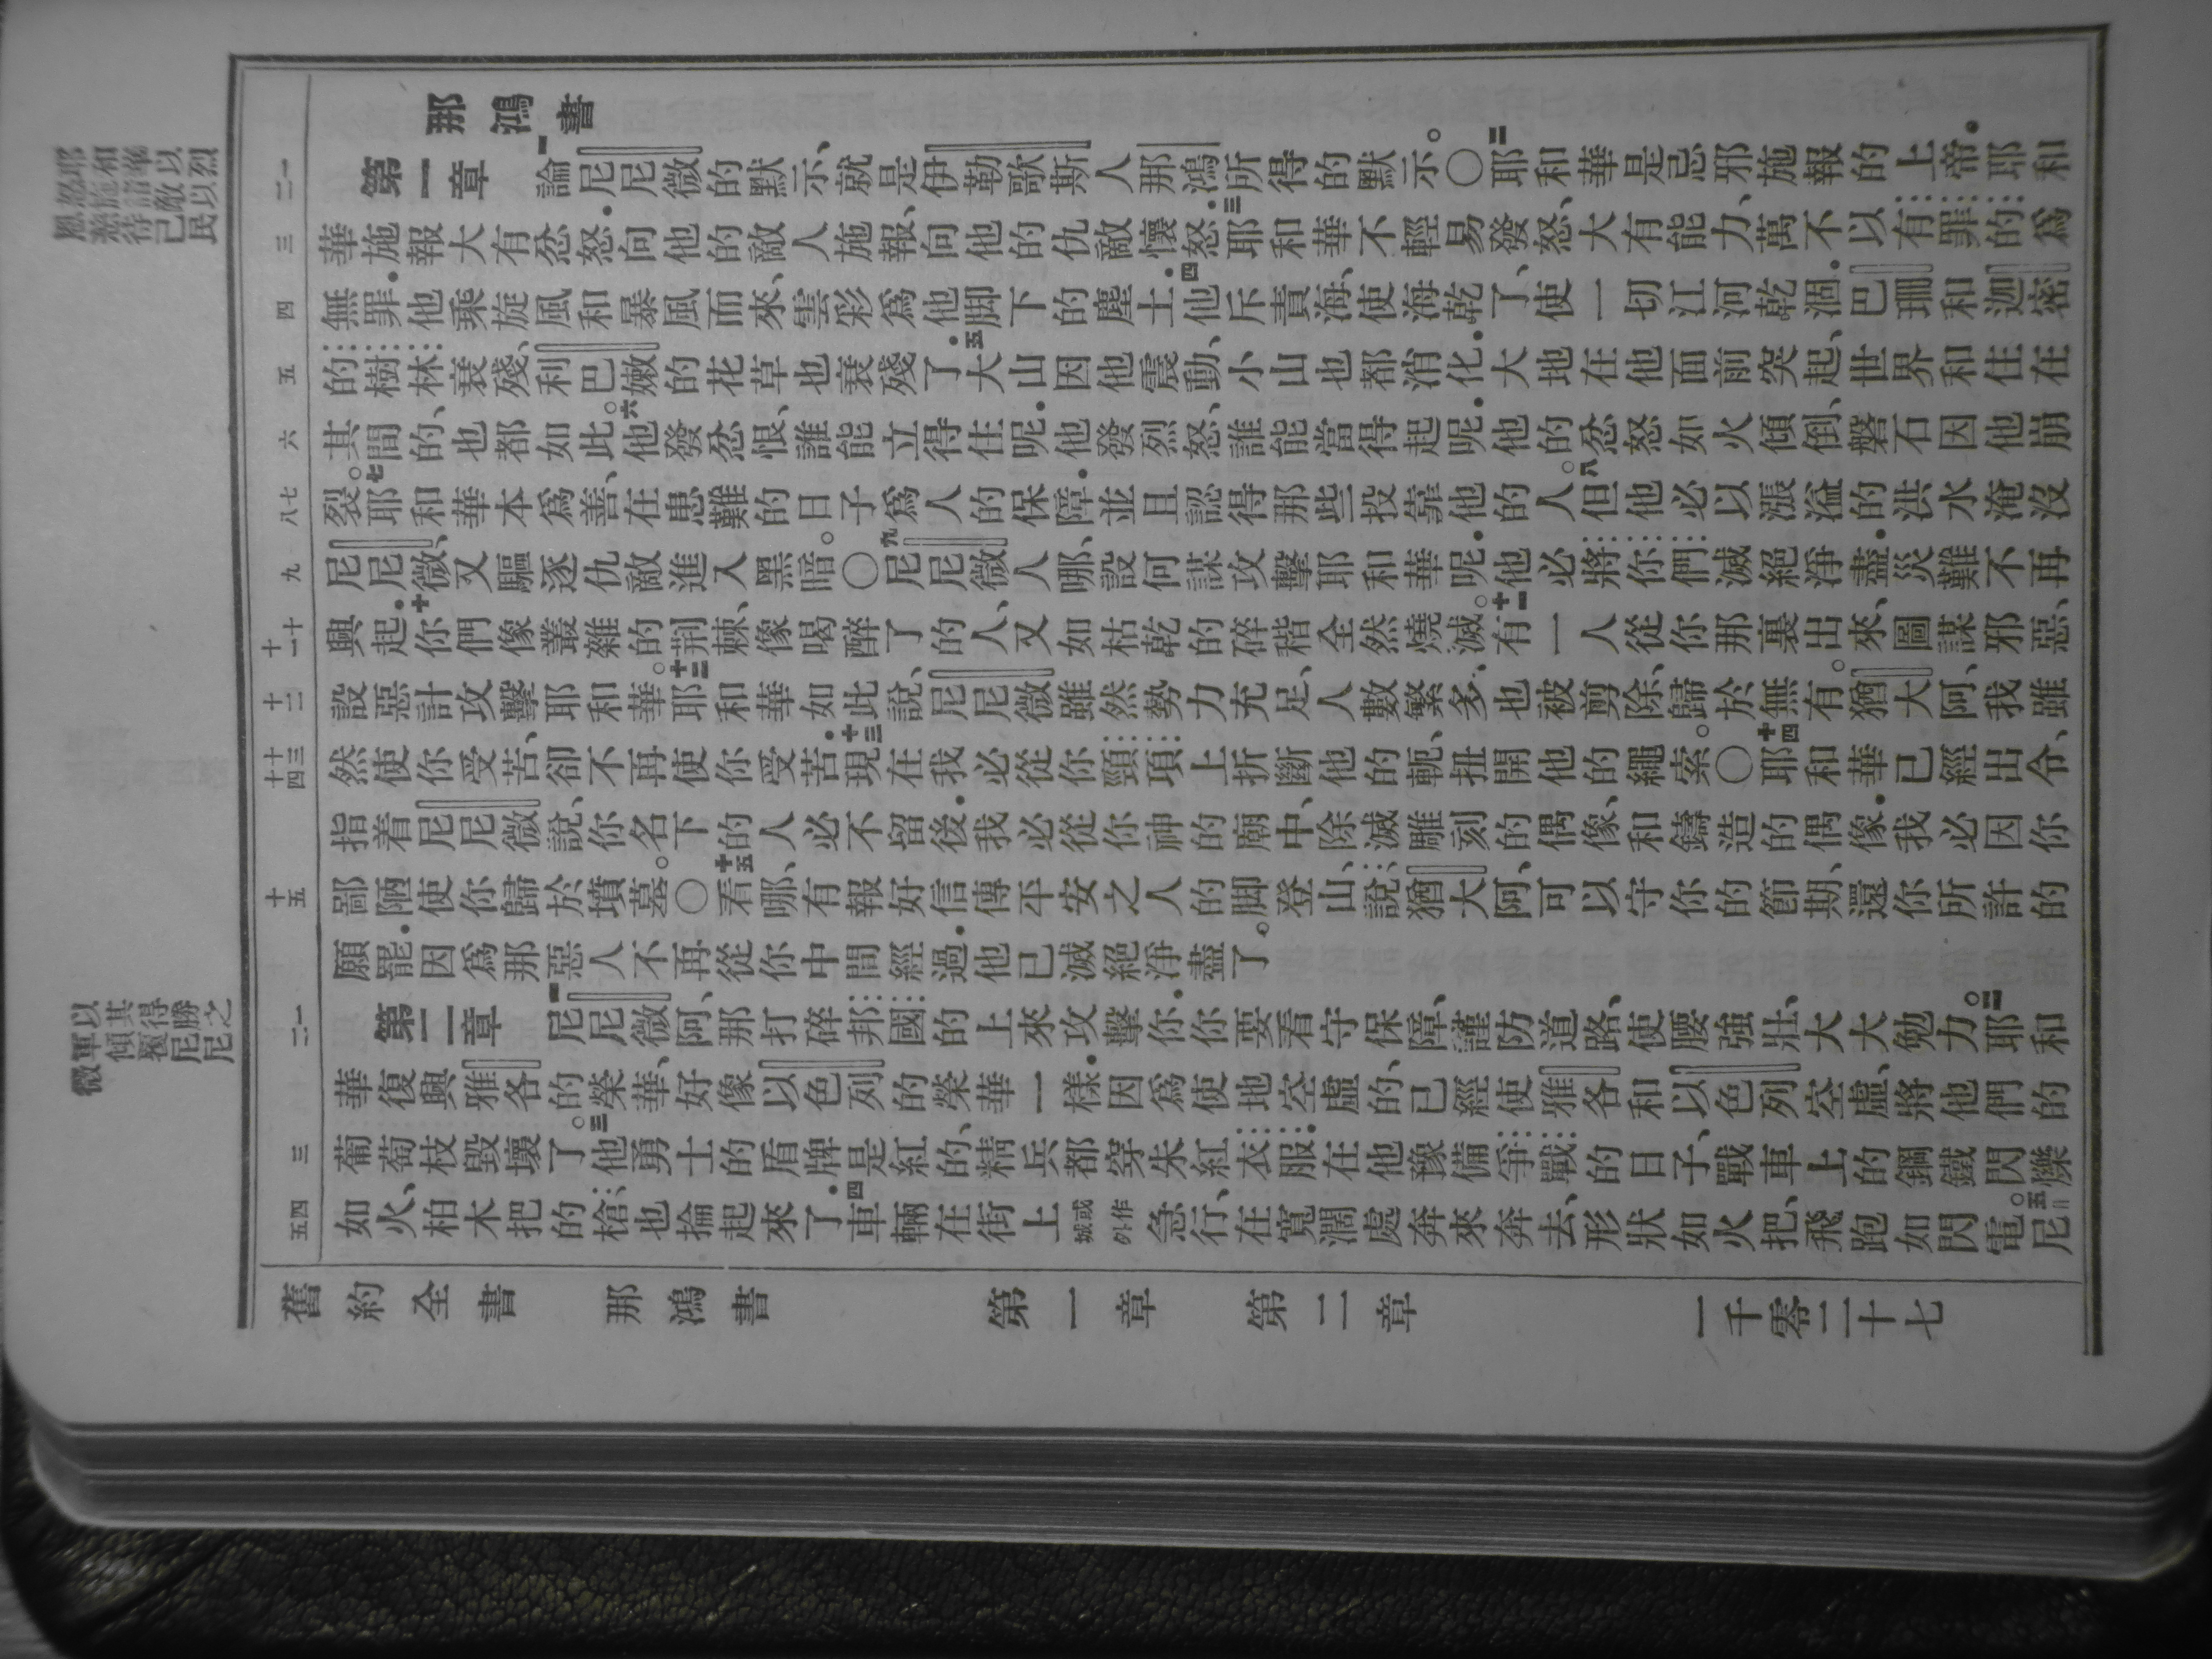 那鴻書
耶和華以烈
怒施諸敵以
恩慈待己民
一二
第一章 一論尼尼微的默示、就是伊勒歌斯人那鴻所得的默示。〇二耶和華是忌邪施報的上帝．耶和
三
華施報大有忿怒．向他的敵人施報、向他的仇敵懷怒．三耶和華不輕易發怒、大有能力、萬不以有罪的爲
四
無罪．他乘旋風和暴風而來、雲彩爲他脚下的塵土．四他斥責海、使海乾了、使一切江河乾涸．巴珊和迦密
五
的樹林衰殘、利巴嫩的花草也衰殘了．五大山因他震動、小山也都消化．大地在他面前突起、世界和住在
六
其間的、也都如此。六他發忿恨、誰能立得住呢．他發烈怒、誰能當得起呢．他的忿怒如火傾倒、磐石因他崩
七八
裂。七耶和華本爲善、在患難的日子爲人的保障．並且認得那些投靠他的人。八但他必以漲溢的洪水淹沒
九
尼尼微、又驅逐仇敵進入黑暗。〇九尼尼微人哪、設何謀攻擊耶和華呢．他必將你們滅絕淨盡．災難不再
十十一
興起．十你們像叢雜的荆棘、像喝醉了的人、又如枯乾的碎稭全然燒滅。十一有一人從你那裏出來、圖謀邪惡、
十二
設惡計攻擊耶和華。十二耶和華如此說、尼尼微雖然勢力充足、人數繁多．也被剪除、歸於無有。猶大阿、我雖
十三十四
然使你受苦、卻不再使你受苦．十三現在我必從你頸項上折斷他的軛、扭開他的繩索。〇十四耶和華已經出令、
指着尼尼微說、你名下的人必不留後．我必從你神的廟中、除滅雕刻的偶像、和鑄造的偶像．我必因你
十五
鄙陋、使你歸於墳墓。〇十五看哪、有報好信傳平安之人的脚登山、說、猶大阿、可以守你的節期、還你所許的
願罷．因爲那惡人不再從你中間經過．他已滅絕淨盡了。
以其得勝之
軍傾覆尼尼
微
一二
第二章 一尼尼微阿、那打碎邦國的上來攻擊你．你要看守保障、謹防道路、使腰強壯、大大勉力。二耶和
華復興雅各的榮華、好像以色列的榮華一樣．因爲使地空虛的、已經使雅各和以色列空虛、將他們的
三
葡萄枝毀壞了。三他勇士的盾牌是紅的、精兵都穿朱紅衣服．在他豫備爭戰的日子、戰車上的鋼鐵閃爍
四五
如火、柏木把的槍、也掄起來了．四車輛在街上或作城外急行、在寬濶處奔來奔去、形狀如火把、飛跑如閃電。五尼
舊約全書 那鴻書 第一章 第二章 一千零二十七